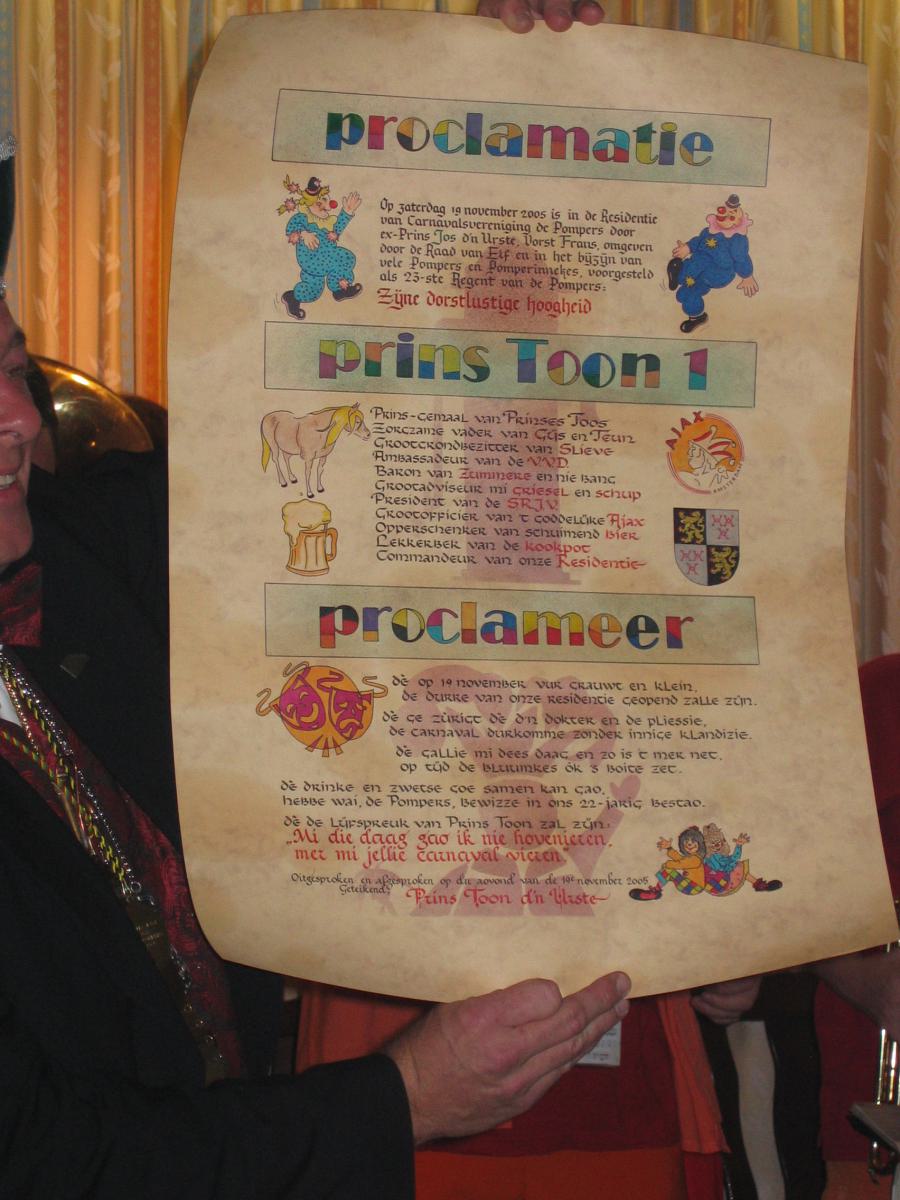 proclamatie
Op zaterdag 19 november 2005 is in de Residentie
van Carnavalsvereniging de Pompers door
ex-Prins Jos d'n Urste, Vorst Frans, omgeven
door de Raad van Elf en in het bijzijn van
vele Pompers en Pomperinnekes, voorgesteld
als 23-ste Regent van de Pompers:
Zijne dorstlustige hoogheid
prins Toon 1
Prins-gemaal van Prinses Toos
Zorgzame vader van Gijs en Teun
Grootgrondbezitter van Slieve
Ambassadeur van de V.V.D.
Baron van Zummere en nie bang
Grootadviseur mi griesel en schup
President van de S.R.J.V.
Grootofficier van 't goddelijke Ajax
Opperschenker van schuimend Bier
Lekkerbek van de kookpot
Commandeur van onze Residentie
AJAX
AMSTERDAM
proclameer
dè op 19 november vur grauwt en klein,
de durre van onze residentie geopend zalle zijn.
dè ge zûrigt dè d'n dokter en de pliessie,
de carnaval durkomme zonder innige klandizie.
dè gallie mi dees daag en zo is 't mer net,
op tijd de bluumkes ôk 's boite zet.
dè drinke en zwetse goe samen kan gao,
hebbe wai, de Pompers, bewizze in ons 22-jarig bestao.
dè de lijfspreuk van Prins Toon zal zijn:
"Mi die daag gao ik nie hovenieren,
mer mi jellie carnaval vieren"
Oitgesproken en afgesproken op den aovond van de 19e november 2005
Geteikend: Prins Toon d'n Urste